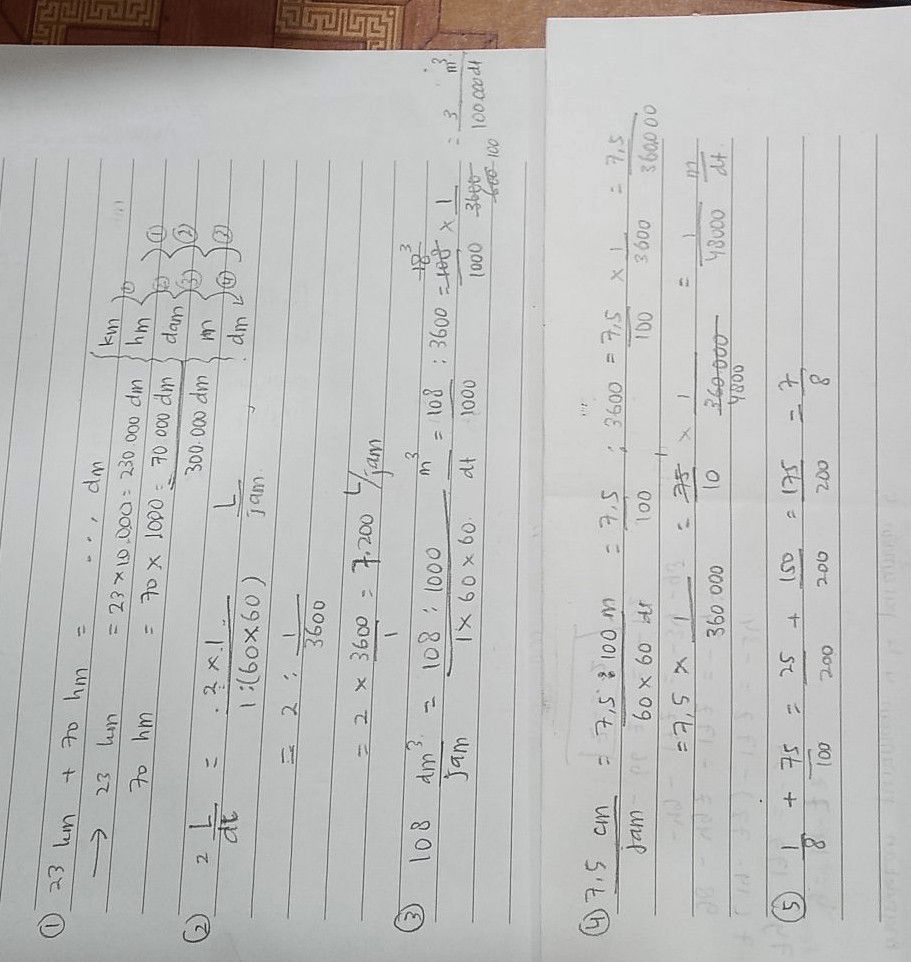 ① 23 km + 70 hm = ... dm
→ 23 km = 23 x 10.000 = 230.000 dm
70 hm = 70 x 1000 = 70 000 dm
300.000 dm
km
hm
dam
m
dm
② 2 L/dt = 2 x 1 / 1:(60x60) L/jam
= 2 : 1/3600
= 2 x 3600/1 = 7.200 L/jam
③ 108 dm³/jam = 108 : 1000 / 1 x 60 x 60 m³/dt = 108/1000 : 3600 = 108/1000 x 1/3600 = 3/100.000 m³/dt
④ 7,5 cm/jam = 7,5 : 100 m / 60 x 60 dt = 7,5/100 : 3600 = 7,5/100 x 1/3600 = 7,5/360.000
= 7,5 x 1/360.000 = 75/10 x 1/360.000 = 1/48000 m/dt
4800
⑤ 1/8 + 75/100 = 25/200 + 150/200 = 175/200 = 7/8